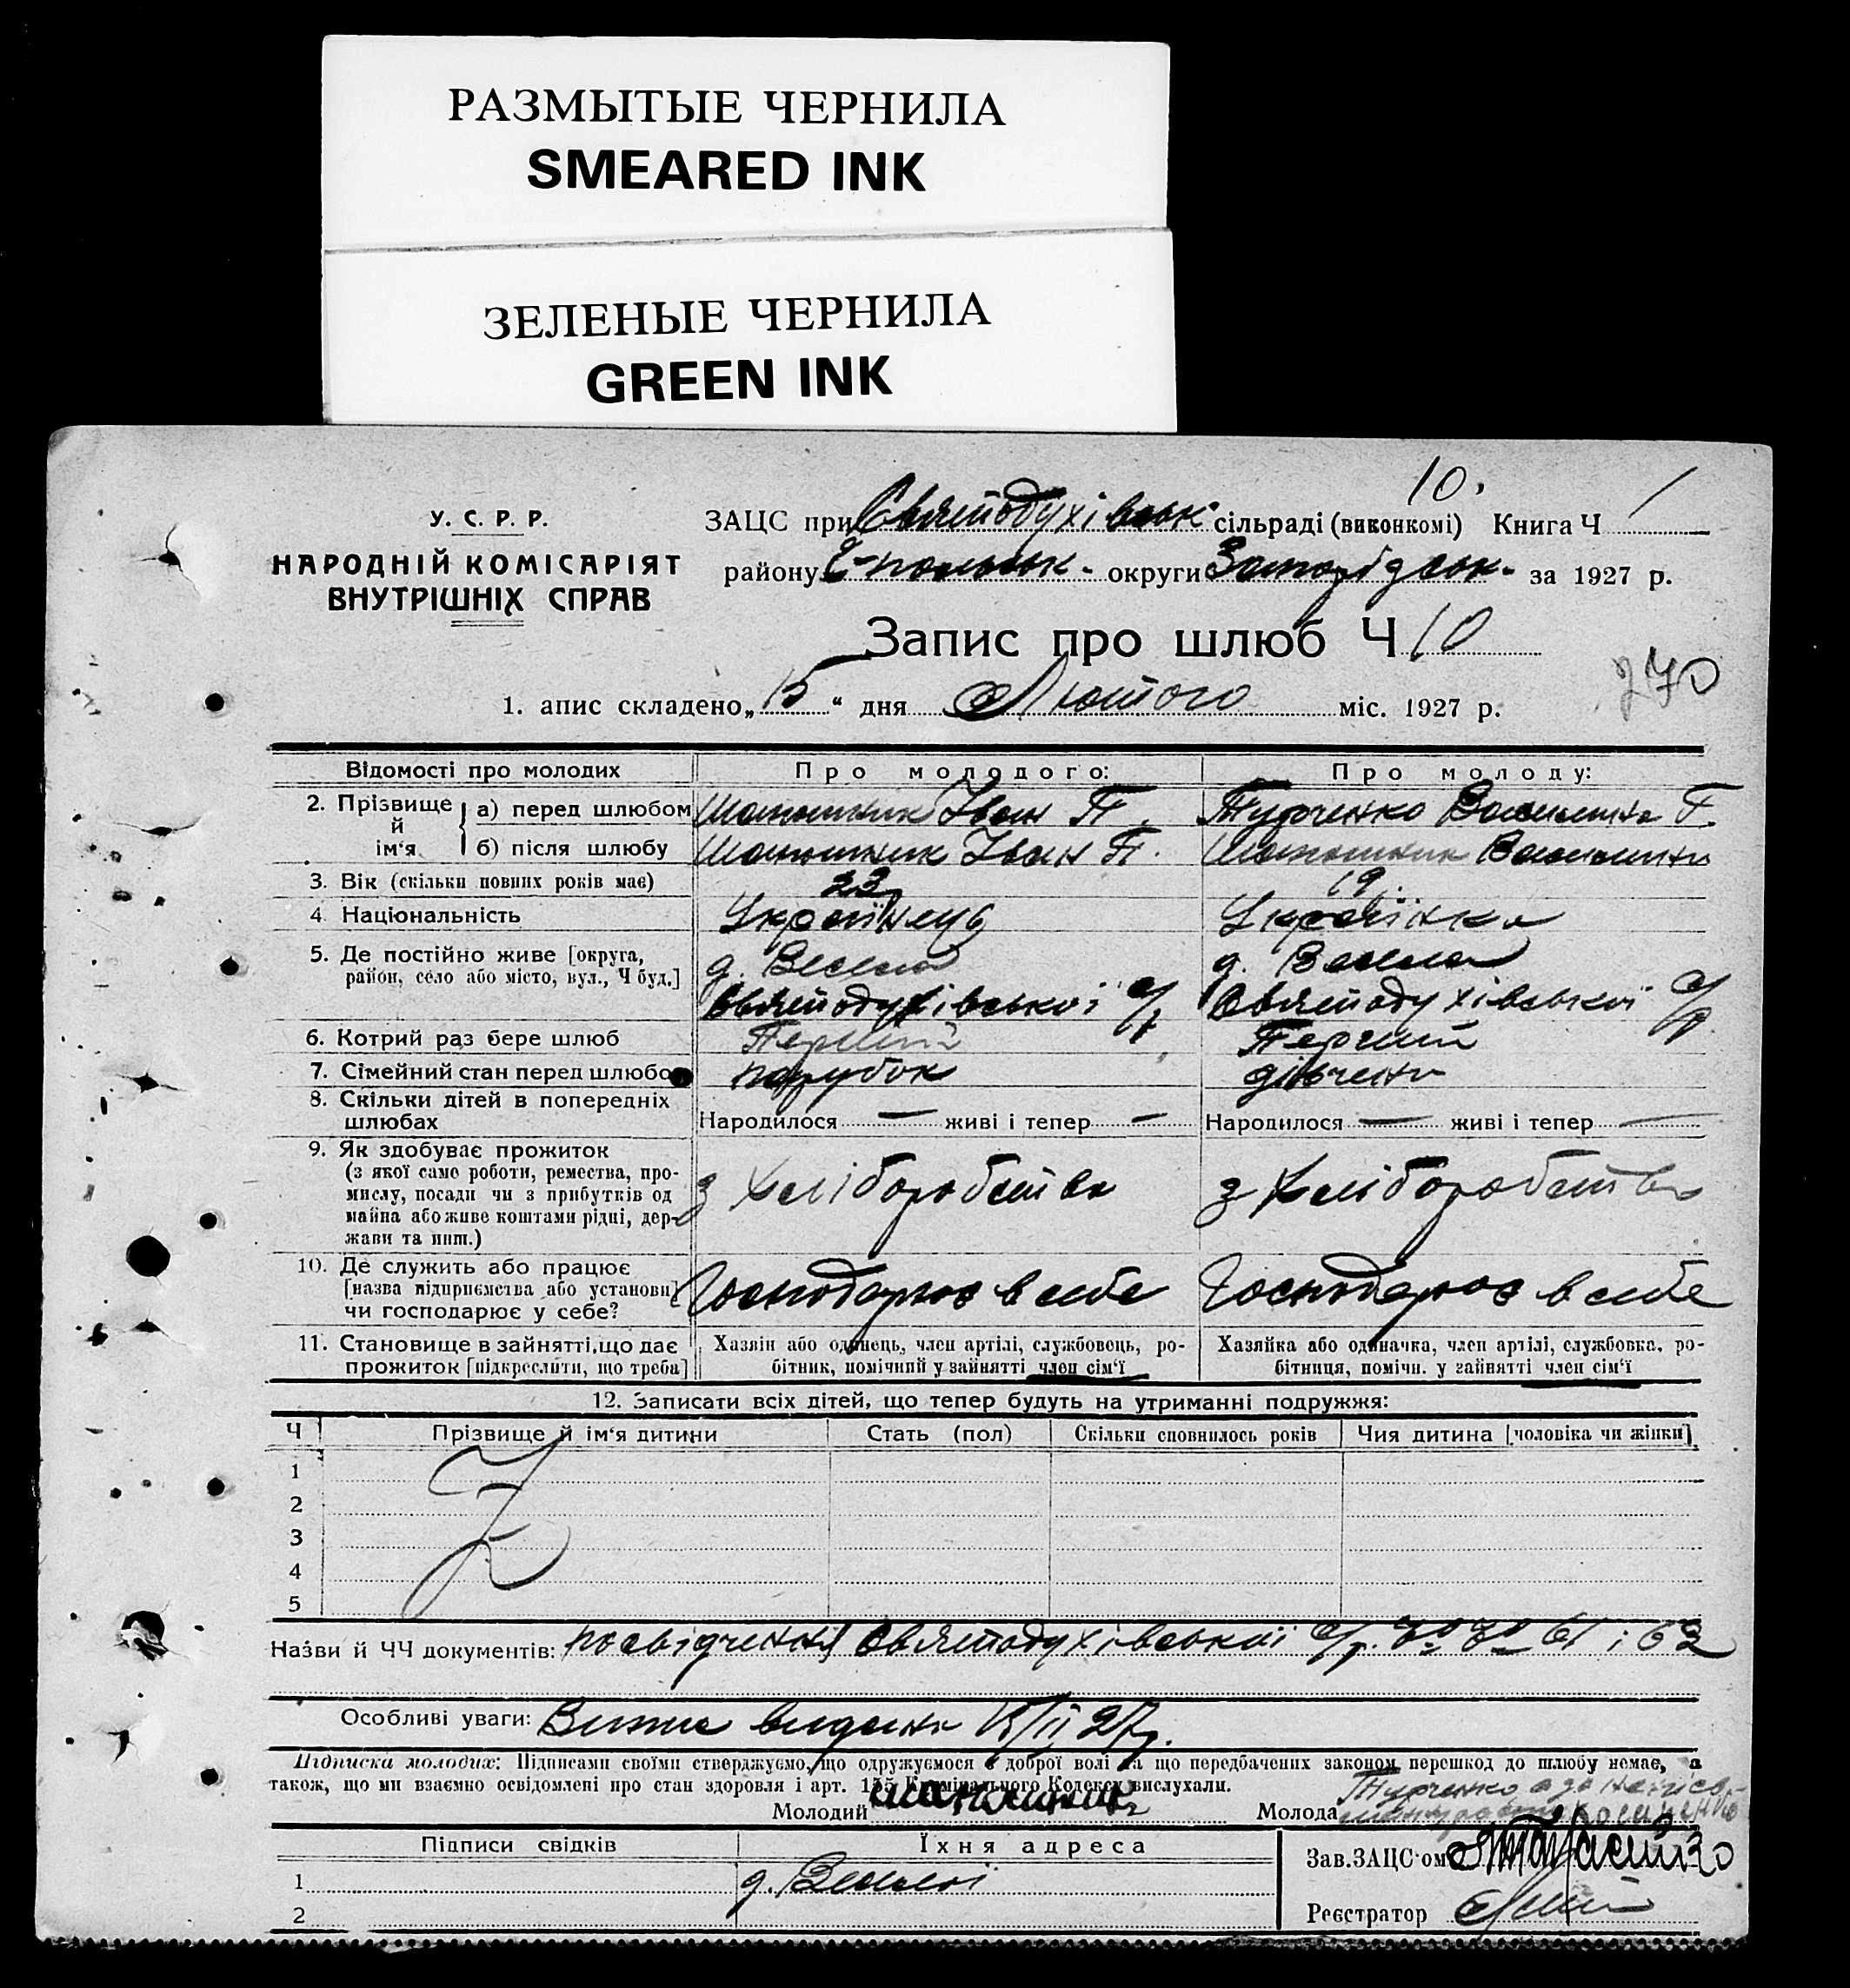 РАЗМЫТЫЕ ЧЕРНИЛА
SMEARED INK
ЗЕЛЕНЫЕ ЧЕРНИЛА
GREEN INK
10.
У. С. Р. Р.
НАРОДНІЙ КОМІСАРІЯТ
ВНУТРІШНІХ СПРАВ
ЗАЦС при Святодухівськ сільраді (виконкомі) Книга Ч 1
району округи за 1927 р.
Запис про шлюб Ч 10
270
1. апис складено „15“ дня Лютого міс. 1927 р.
Відомості про молодих Про молодого: Про молоду:
2. Прізвище й ім‘я а) перед шлюбом Іван П. Турченко Василина Г.
б) після шлюбу Іван П. Василина
3. Вік (скільки повних років має) 23 19
4 Національність Українець Українка
5. Де постійно живе [округа, район, село або місто, вул., Ч буд.] д. Весела д. Весела
Святодухівської с/р Святодухівської с/р
6. Котрий раз бере шлюб Перший Перший
7. Сімейний стан перед шлюбо парубок дівчина
8. Скільки дітей в попередніх шлюбах Народилося — живі і тепер — Народилося — живі і тепер —
9. Як здобуває прожиток
(з якої само роботи, ремества, про-
мислу, посади чи з прибутків од
майна або живе коштами рідні, дер-
жави та инш.) з хліборобства з хліборобства
10. Де служить або працює
[назва підприємства або установи]
чи господарює у себе? Господарює в себе Господарює в себе
11. Становище в зайнятті, що дає
прожиток [підкреслити, що треба] Хазяін або одинець, член артілі, службовець, ро-
бітник, помічний у зайнятті член сім‘ї Хазяйка або одиначка, член артілі, службовка, ро-
бітниця, помічн. у зайнятті член сім‘ї
12. Записати всіх дітей, що тепер будуть на утриманні подружжя:
Ч Прізвище й ім‘я дитини Стать (пол) Скільки сповнилось років Чия дитина [чоловіка чи жінки]
1
2
3
4
5
Назви й ЧЧ документів: посвідчення Святодухівської с/р. 61 і 62
Особливі уваги: видана 15/II 27р.
Підписка молодих: Підписами своїми стверджуємо, що одружуємося з доброї волі та що передбачених законом перешкод до шлюбу немає, а
також, що ми взаємно освідомлені про стан здоровля і арт. 155 Кримінального Кодексу вислухали.
Молодий Молода Турченко
Підписи свідків Їхня адреса
Зав. ЗАЦС‘ом
1 д. Веселої
2
Реєстратор